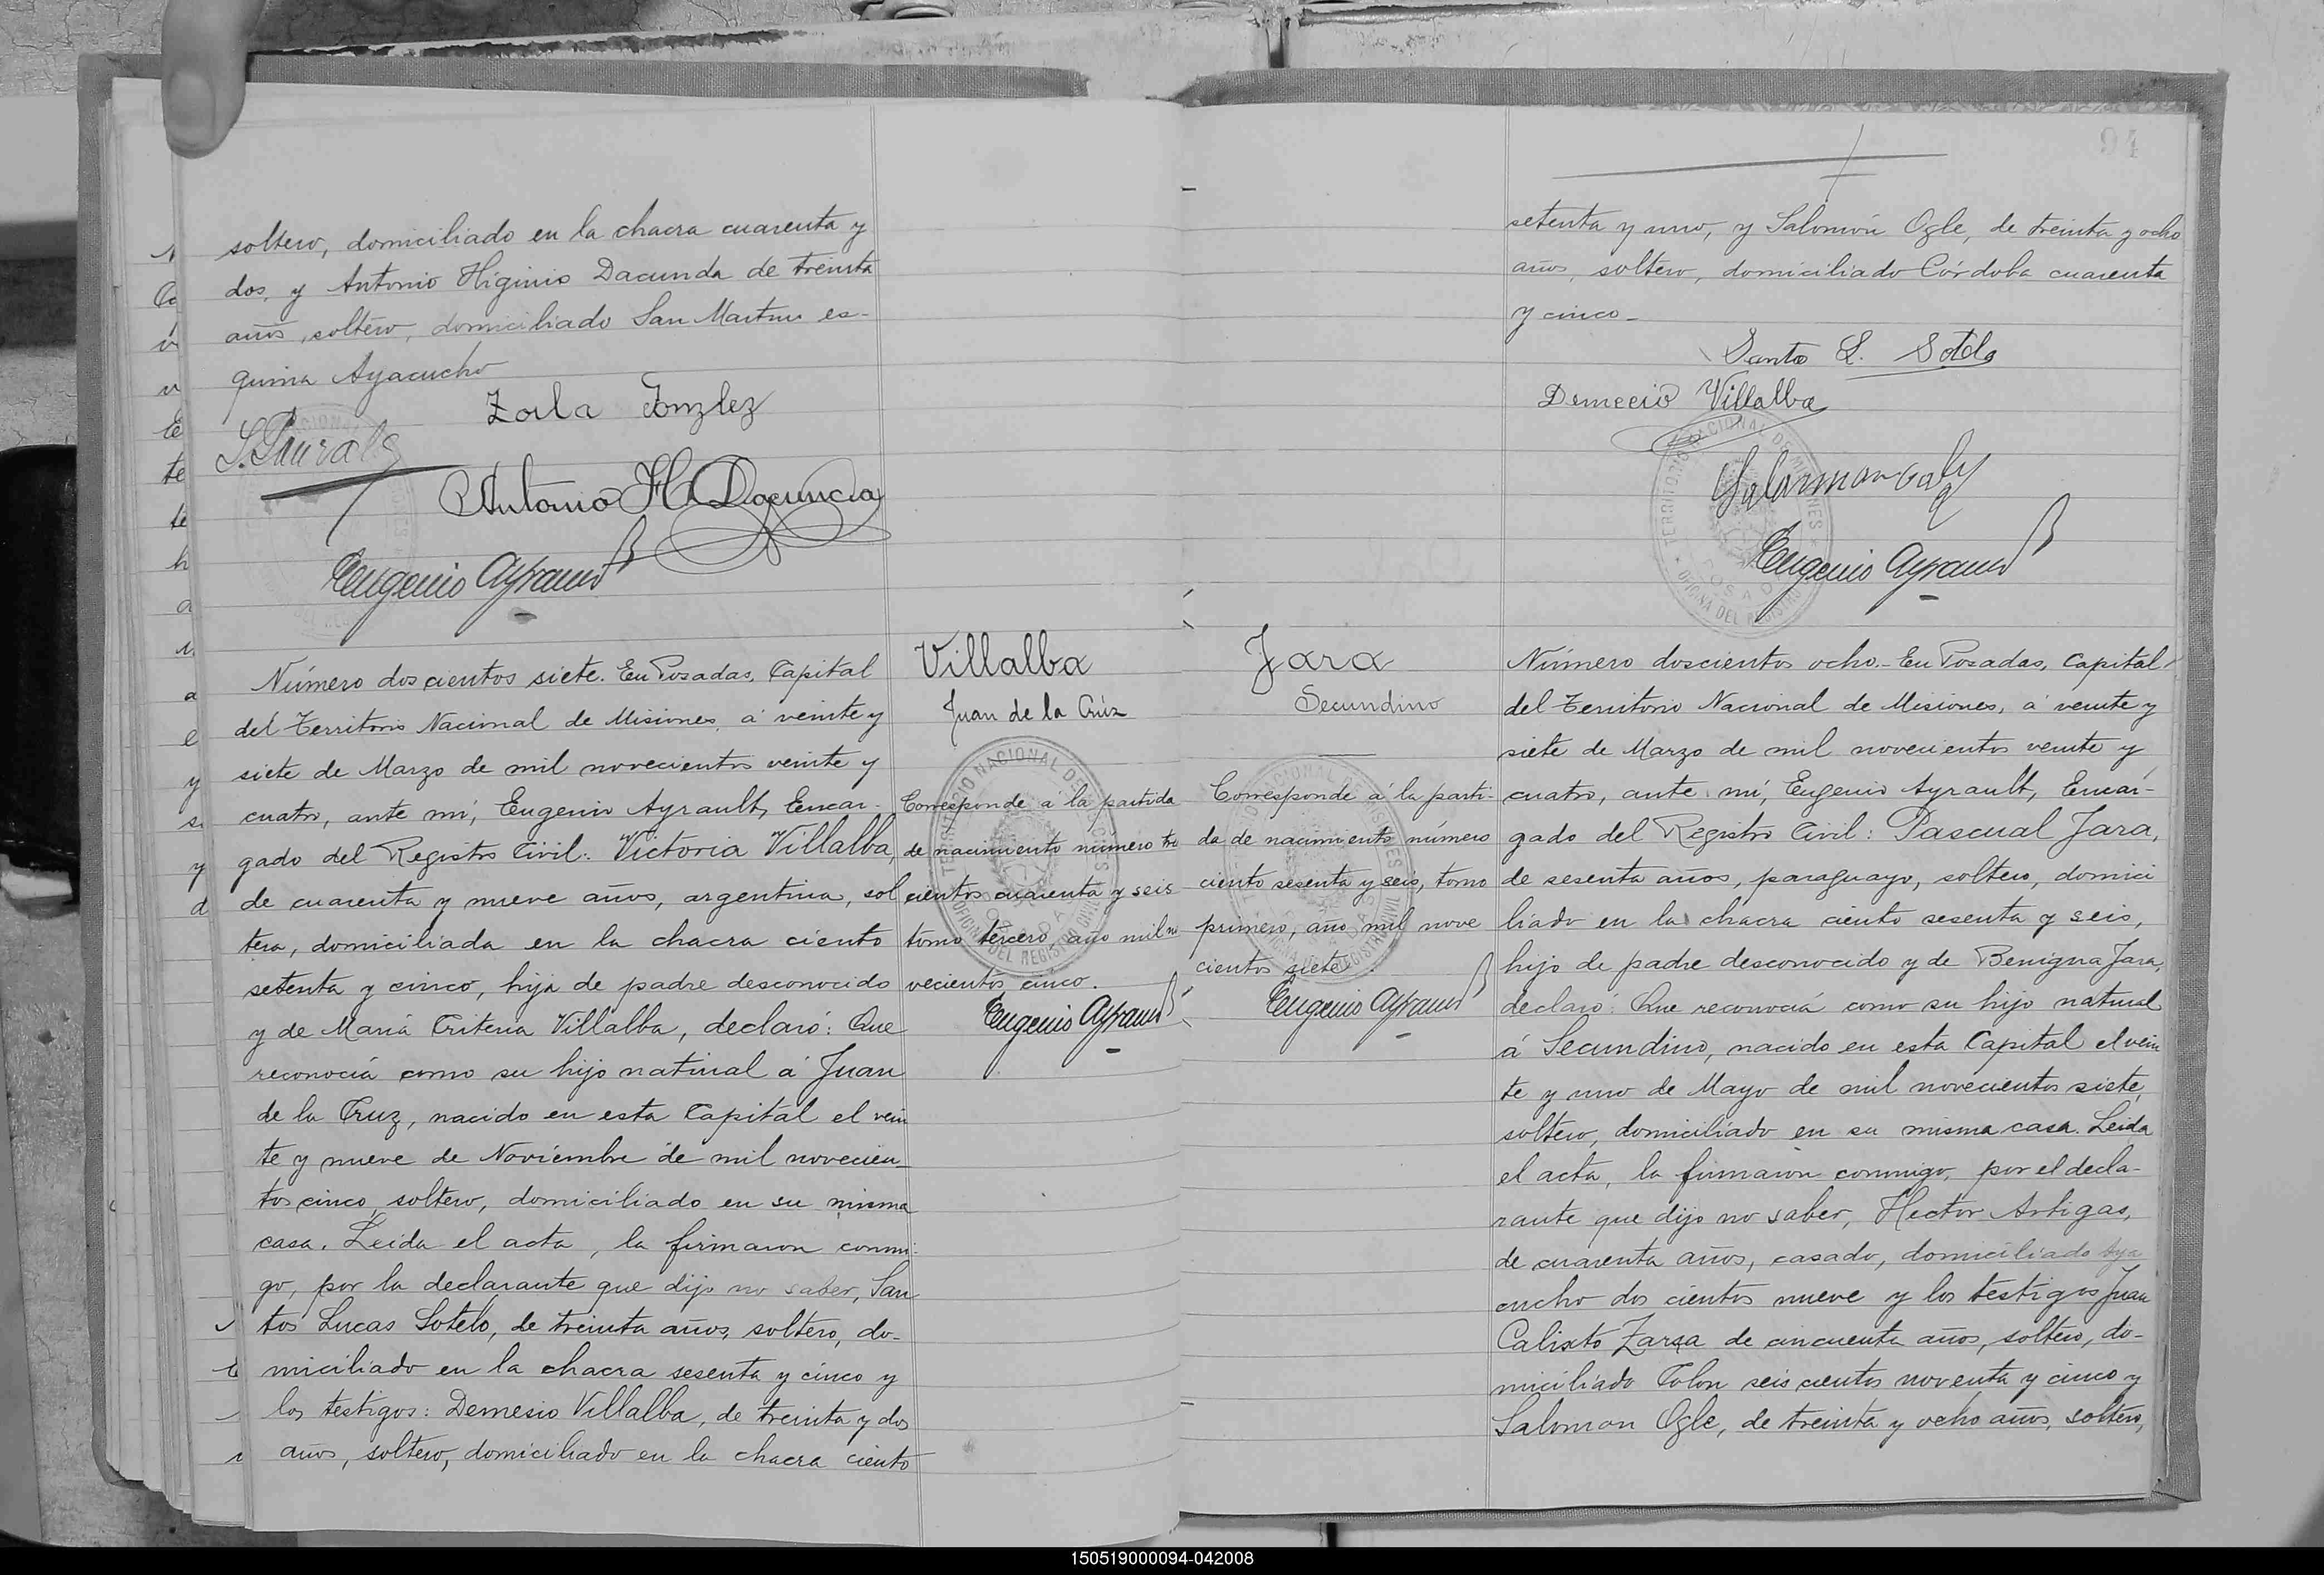 soltero, domiciliado en la chacra cuarenta y
dos, y Antonio Higinio Dacunda de treinta
años, soltero, domiciliado San Martin es-
quina Ayacucho
Zoila
Antonio H Dacuncia
Eugenio Ayrault
Número doscientos siete. En Posadas, Capital
del Territorio Nacional de Misiones, á veinte y
siete de Marzo de mil novecientos veinte y
cuatro, ante mí, Eugenio Ayrault, Encar-
gado del Registro Civil: Victoria Villalba,
de cuarenta y nueve años, argentina, sol
tera, domiciliada en la chacra ciento
setenta y cinco, hija de padre desconocido
y de María Criteria Villalba, declaró: Que
reconocía como su hijo natural á Juan
de la Cruz, nacido en esta Capital el vein
te y nueve de Noviembre de mil novecien-
tos cinco, soltero, domiciliado en su misma
casa. Leida el acta, la firmaron conmi-
go, por la declarante que dijo no saber, San
tos Lucas Sotelo, de treinta años, soltero, do-
miciliado en la chacra sesenta y cinco y
los testigos: Demesio Villalba, de treinta y dos
años, soltero, domiciliado en la chacra ciento
Villalba
Juan de la Crúz
Corresponde á la partida
de nacimiento número tres
cientos cuarenta y seis
tomo tercero, año mil no
vecientos cinco.
Eugenio Ayrault
94
setenta y uno, y Salomón Ogle, de treinta y ocho
años, soltero, domiciliado Córdoba cuarenta
y cinco_
Santos L. Sotelo
Demecio Villalba
Eugenio Ayrault
TERRITORIO NACIONAL DE MISIONES
OFICINA DEL REGISTRO CIVIL
POSADAS
Jara
Secundino
Corresponde á la parti-
da de nacimiento número
ciento sesenta y seis, tomo
primero, año mil nove
cientos siete.
Eugenio Ayrault
Número doscientos ocho.- En Posadas, Capital
del Territorio Nacional de Misiones, á veinte y
siete de Marzo de mil novecientos veinte y
cuatro, ante mí, Eugenio Ayrault, Encar-
gado del Registro Civil: Pascual Jara,
de sesenta años, paraguayo, soltero, domici
liado en la chacra ciento sesenta y seis,
hijo de padre desconocido y de Benigna Jara,
declaró: Que reconocía como su hijo natural
á Secundino, nacido en esta Capital el vein
te y uno de Mayo de mil novecientos siete,
soltero, domiciliado en su misma casa. Leida
el acta, la firmaron conmigo, por el decla-
rante que dijo no saber, Hector Artigas,
de cuarenta años, casado, domiciliado Aya
cucho dos cientos nueve y los testigos Juan
Calixto Zarza de cincuenta años, soltero, do-
miciliado Colon seis cientos noventa y cinco y
Salomon Ogle, de treinta y ocho años, soltero,
150519000094-042008